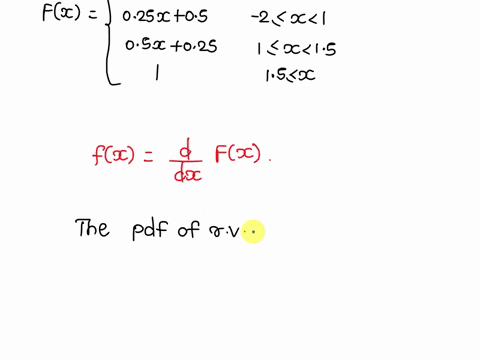 F(x) = { 0.25x + 0.5   -2 ≤ x < 1
0.5x + 0.25   1 ≤ x < 1.5
1   1.5 ≤ x
f(x) = d/dx F(x).
The pdf of r.v.